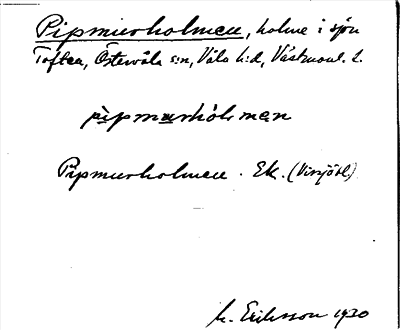 Pipmurholmen, holme i sjön
Toften, Östervåla s:n, Våla h:d, Västmanl. l.
pìpmurhól̥men
Pipmurholmen. Ek. (Virsjöbl.)
M. Eriksson 1930